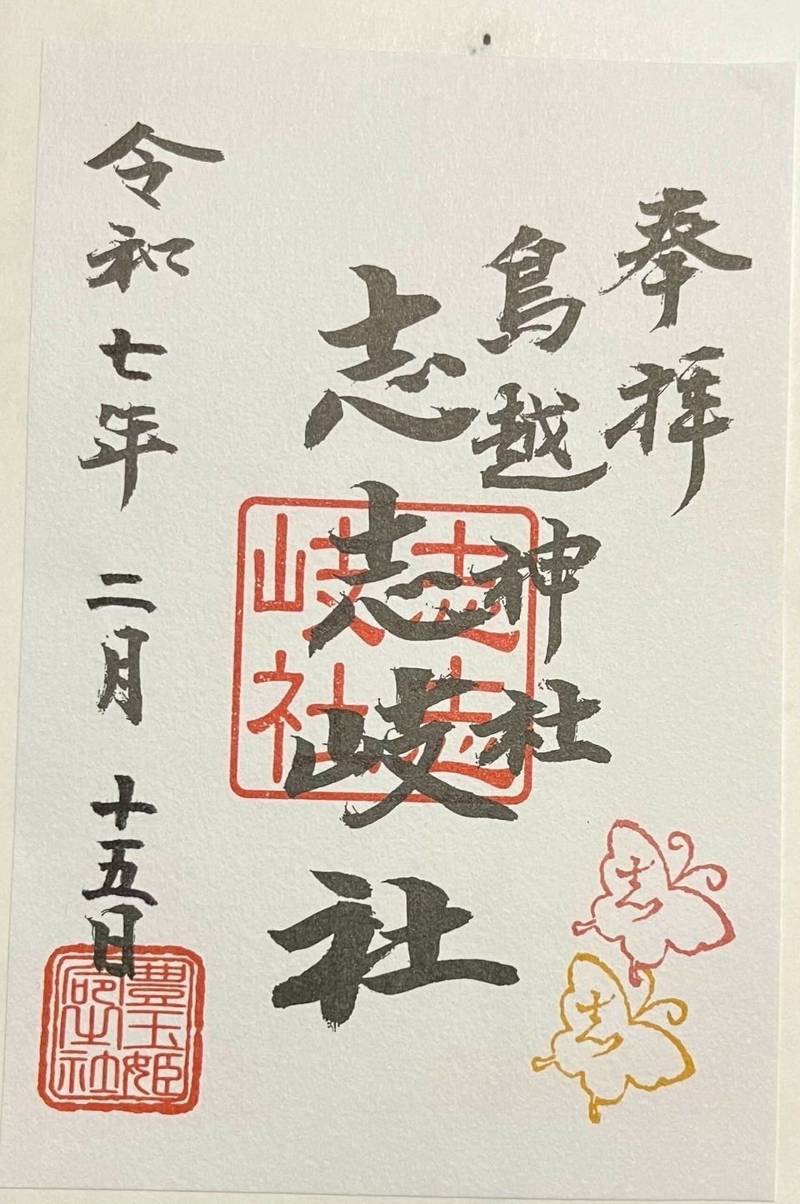 奉拝
鳥越神社
志志岐社
令和七年二月十五日
志志
岐社
豊玉姫
志
志